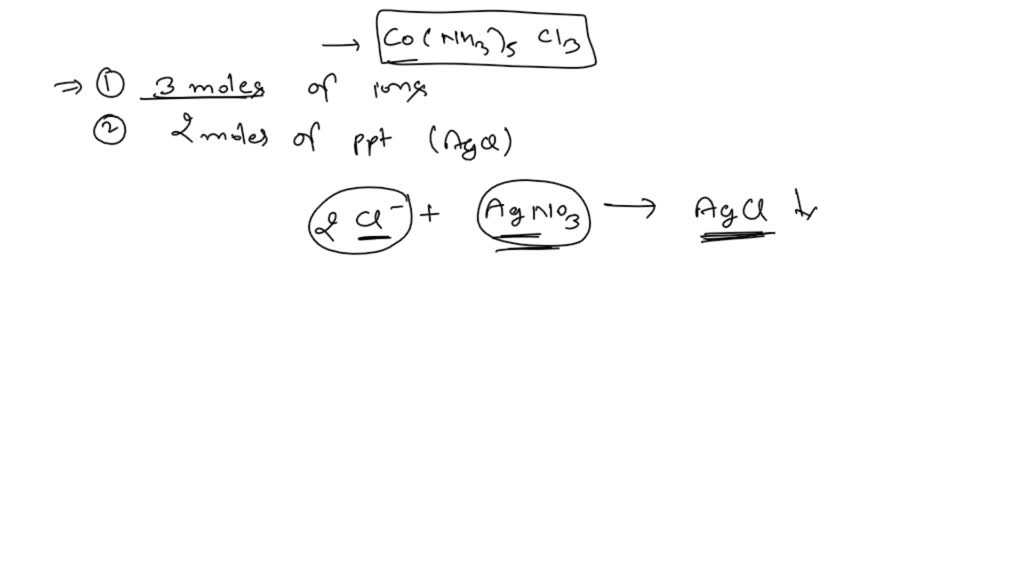 → Co(NH3)5 Cl3
⇒ ① 3 moles of ions
② 2 moles of ppt (AgCl)
2 Cl⁻ + AgNO3 → AgCl ↓